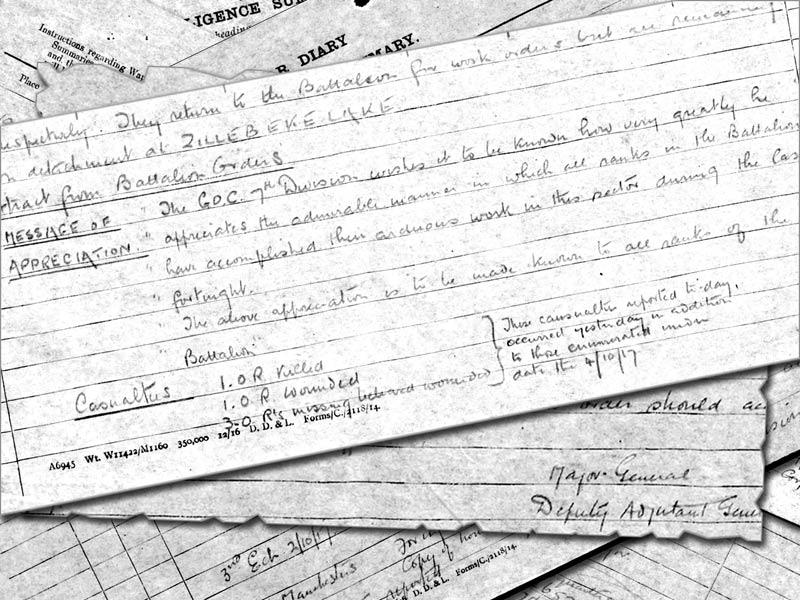 LIGENCE SU
headin
Instructions regarding War
Summaries
and th
Place
R DIARY
MARY.
espectively. They return to the Battalion for work orders but are remaining
n detachment at ZILLEBEKE LAKE.
tract from Battalion Orders
MESSAGE OF
APPRECIATION.
" The G.O.C. 7th Division wishes it to be known how very greatly he
" appreciates the admirable manner in which all ranks in the Battalion
" have accomplished their arduous work in this sector during the las
" fortnight.
The above appreciation is to be made known to all ranks of the
" Battalion"
Casualties
1. O.R. Killed
1. O.R. wounded
3. O.R's missing believed wounded
These casualties reported to-day,
occurred yesterday in addition
to those enumerated under
date the 4/10/17
A6945 Wt. W11422/M1160 350,000 12/16 D. D. & L. Forms/C./2118/14.
order should ac
Major-General
Deputy Adjutant Gene
3rd Ech 2/10/17
Manchesters
For th
Copy of
D. D. & L. Forms/C./2118/14.